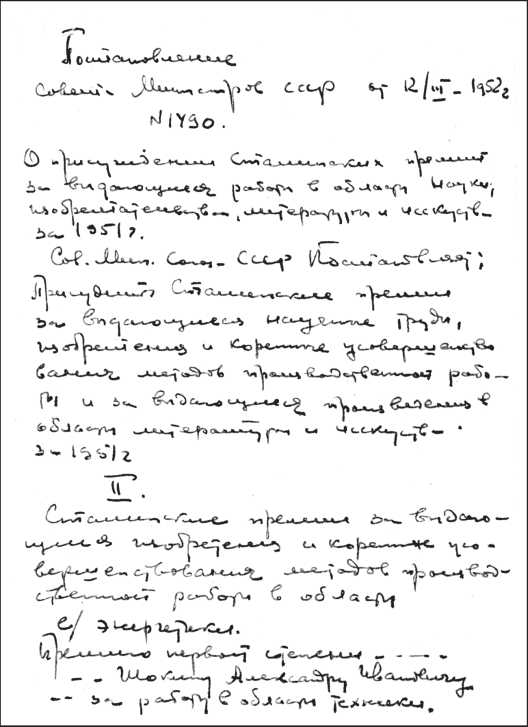 Постановление
Совета Министров СССР от 12/III-1952г
N 1490.
О присуждении Сталинских премий
за выдающиеся работы в области науки,
изобретательства, литературы и искусства
за 1951 г.
Сов. Мин. Союза СССР Постановляет;
Присудить Сталинские премии
за выдающиеся научные труды,
изобретения и коренные усовершенство
вания методов производственной рабо-
ты и за выдающиеся произведения в
области литературы и искусства.
за 1951г
II.
Сталинские премии за выдаю-
щиеся изобретения и коренные усо-
вершенствования методов производ-
ственной работы в области
е/ Энергетики.
Премию первой степени - - - -
- - Шокину Александру Ивановичу
-- за работу в области техники.